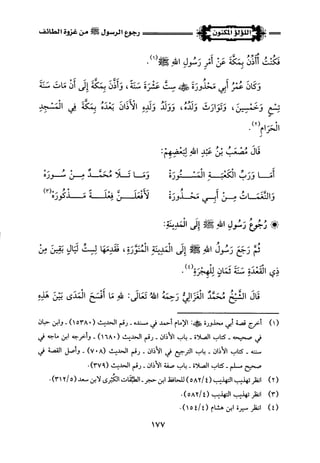 رجوع الرسول ﷺ من غزوة الطائف
اللؤلؤ المكنون
فَكُنْتُ أُؤَذِّنُ بِمَكَّةَ عَنْ أَمْرِ رَسُولِ اللهِ ﷺ (١).
وَكَانَ عُمُرُ أَبِي مَحْذُورَةَ ﵁ سِتَّ عَشْرَةَ سَنَةً، وَأَذَّنَ بِمَكَّةَ إِلَى أَنْ مَاتَ سَنَةَ
تِسْعٍ وَخَمْسِينَ، وَتَوَارَثَ وَلَدُهُ، وَوَلَدُ وَلَدِهِ الْأَذَانَ بَعْدَهُ بِمَكَّةَ فِي الْمَسْجِدِ
الْحَرَامِ (٢).
قَالَ مُصْعَبُ بْنُ عَبْدِ اللهِ لِبَعْضِهِمْ:
أَمَا وَرَبِّ الْكَعْبَةِ الْمَسْتُورَهْ وَمَا تَلَا مُحَمَّدٌ مِنْ سُورَهْ
وَالنَّغَمَاتِ مِنْ أَبِي مَحْذُورَهْ لَأَفْعَلَنَّ فِعْلَةً مَذْكُورَهْ (٣)
* رُجُوعُ رَسُولِ اللهِ ﷺ إِلَى الْمَدِينَةِ:
ثُمَّ رَجَعَ رَسُولُ اللهِ ﷺ إِلَى الْمَدِينَةِ الْمُنَوَّرَةِ، فَقَدِمَهَا لِسِتِّ لَيَالٍ بَقِينَ مِنْ
ذِي الْقَعْدَةِ سَنَةَ ثَمَانٍ لِلْهِجْرَةِ (٤).
قَالَ الشَّيْخُ مُحَمَّدٌ الْغَزَالِيُّ رَحِمَهُ اللهُ تَعَالَى: لِلهِ مَا أَفْسَحَ الْمَدَى بَيْنَ هَذِهِ
(١) أخرج قصة أبي محذورة ﵁: الإمام أحمد في مسنده - رقم الحديث (١٥٣٨٠) - وابن حبان
في صحيحه - كتاب الصلاة - باب الأذان - رقم الحديث (١٦٨٠) - وأخرجه ابن ماجه في
سننه - كتاب الأذان - باب الترجيع في الأذان - رقم الحديث (٧٠٨) - وأصل القصة في
صحيح مسلم - كتاب الصلاة - باب صفة الأذان - رقم الحديث (٣٧٩).
(٢) انظر تهذيب التهذيب (٥٨٢/٤) للحافظ ابن حجر - الطبقات الكبرى لابن سعد (٣١٢/٥).
(٣) انظر تهذيب التهذيب (٥٨٢/٤).
(٤) انظر سيرة ابن هشام (١٥٤/٤).
١٧٧